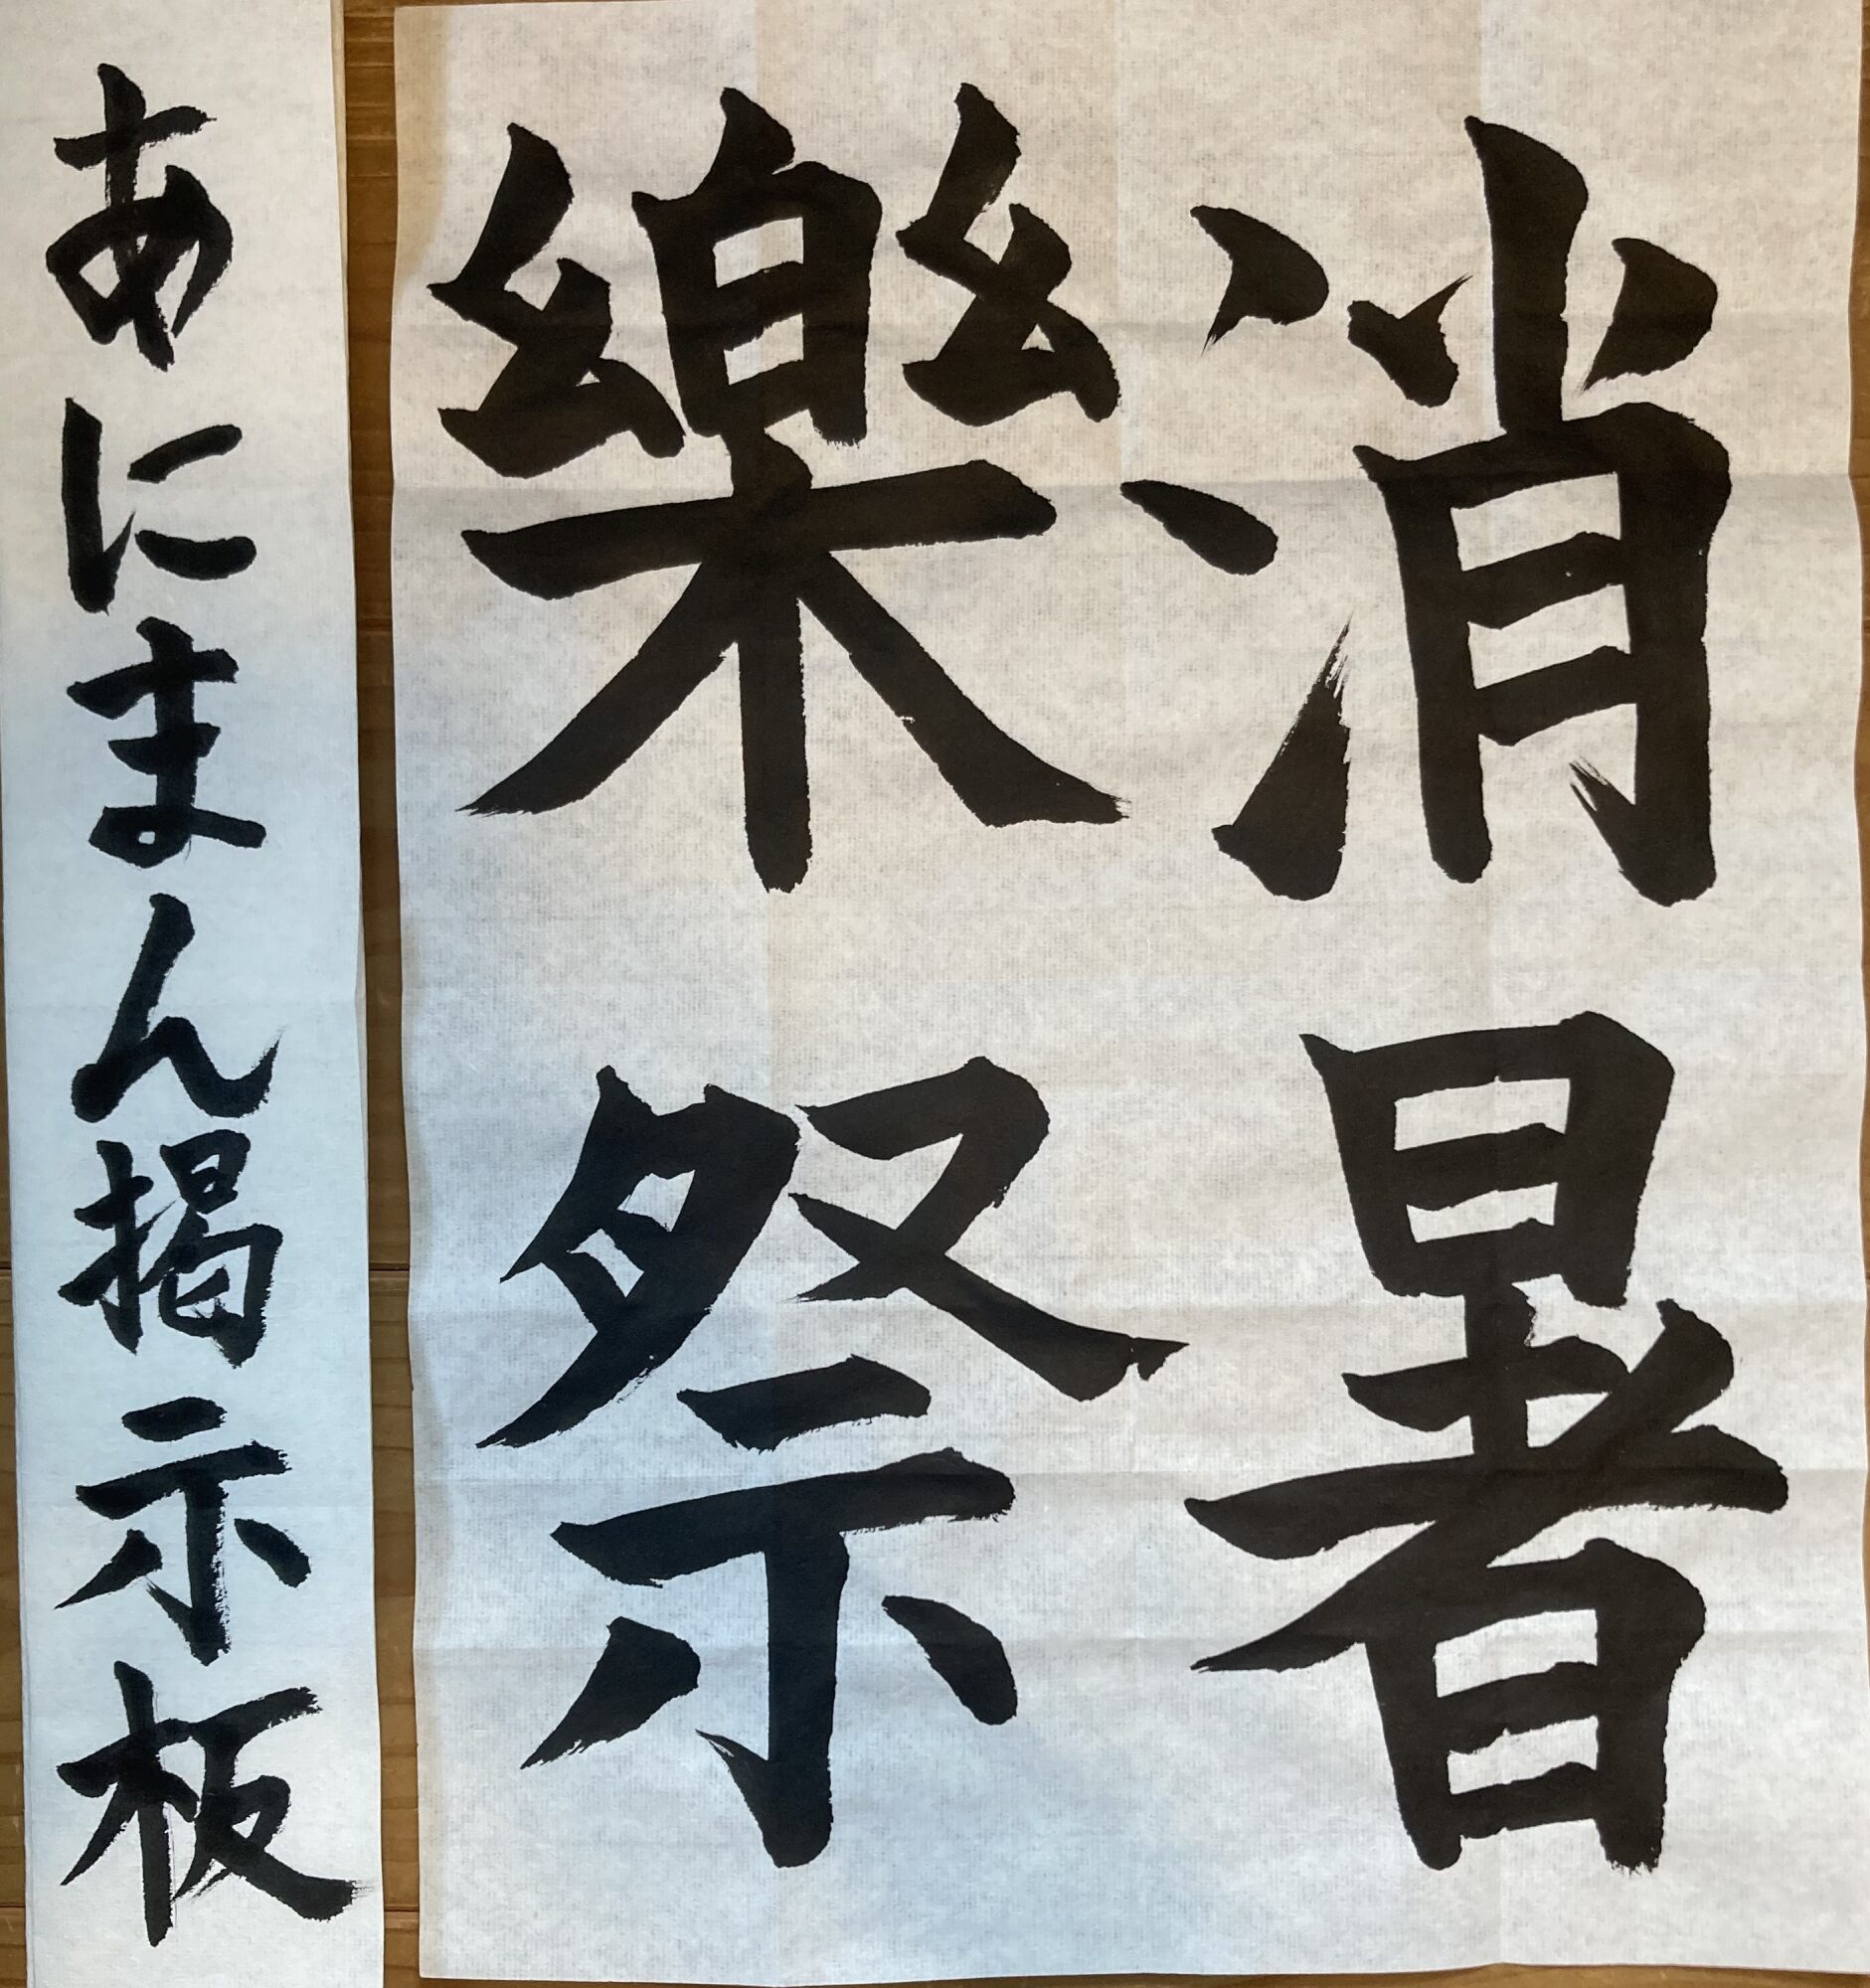 消暑
樂祭
あにまん掲示板